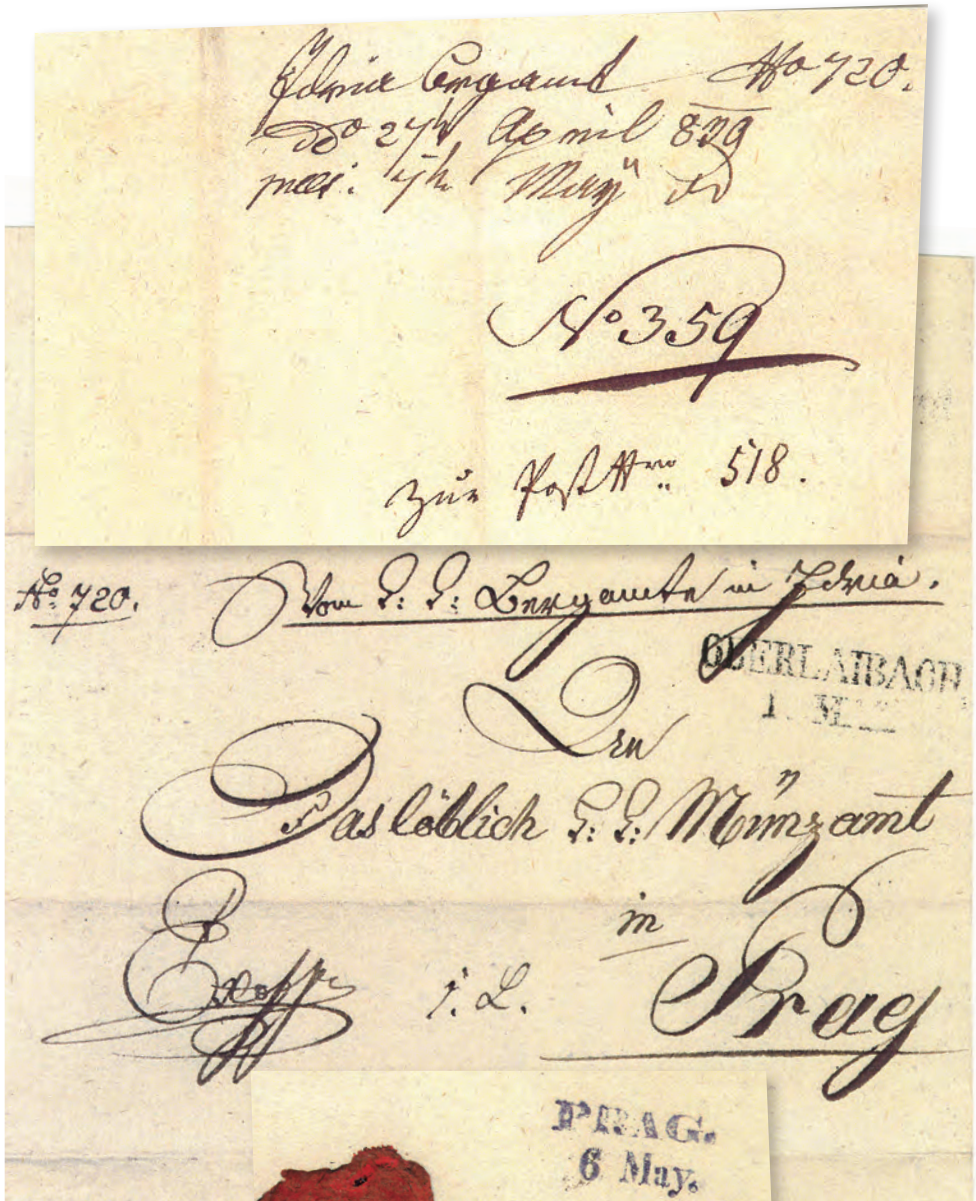 Idria Bergamt No 720.
ddo 27t April 839
praes. 7t May dto
No 359
zur Post Nro 518.
No 720.
Vom k: k: Bergamte in Idria.
OBERLAIBACH
1. M
An
Das löblich k: k: Münzamt
in
Exoffo
Prag
PRAG.
6 May.